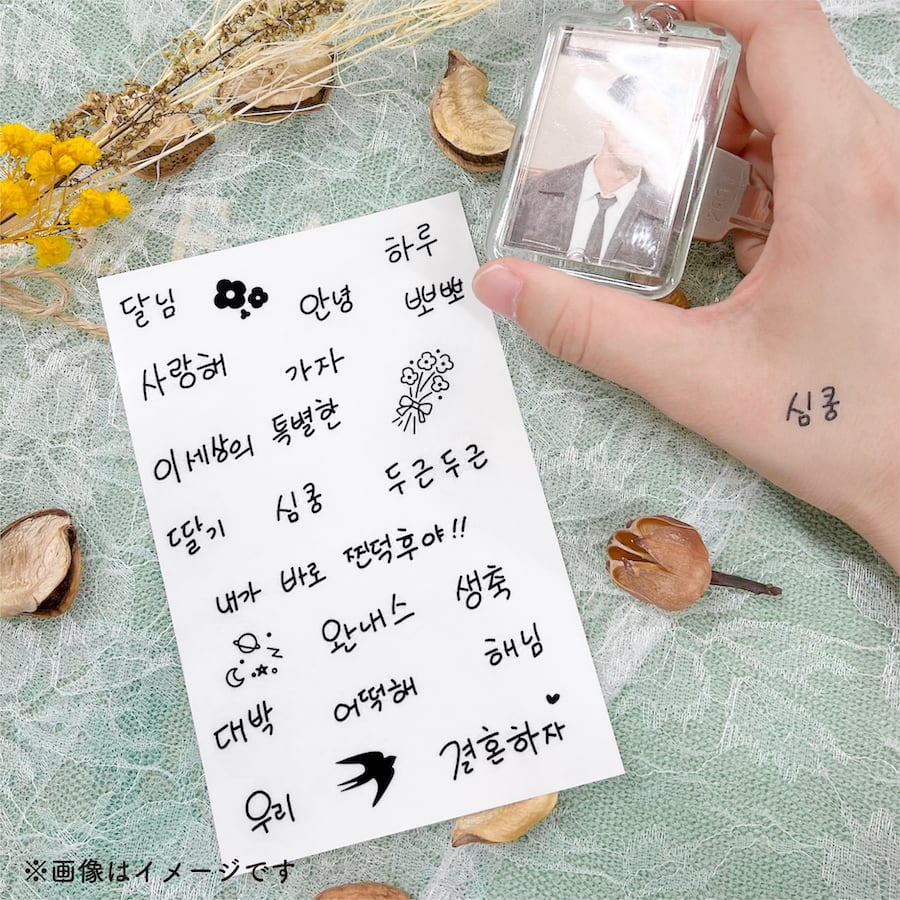 하루
달님 안녕 뽀뽀
사랑해 가자
이 세상의 특별한
딸기 심쿵 두근두근
내가 바로 찐덕후야!!
완내스 생축
해님
대박 어떡해
결혼하자
우리
심쿵
※画像はイメージです